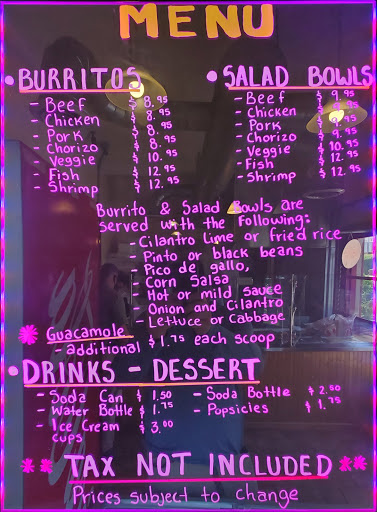 MENU
• BURRITOS
- Beef $ 8.95
- Chicken $ 8.95
- Pork $ 8.95
- Chorizo $ 8.95
- Veggie $ 10.95
- Fish $ 12.95
- Shrimp $ 12.95
• SALAD BOWLS
- Beef $ 9.95
- Chicken $ 9.95
- Pork $ 9.95
- Chorizo $ 9.95
- Veggie $ 10.95
- Fish $ 12.95
- Shrimp $ 12.95
Burrito & Salad Bowls are
served with the Following:
- Cilantro Lime or fried rice
- Pinto or black beans
- Pico de gallo,
- Corn Salsa
- Hot or mild sauce
Onion and Cilantro
- Lettuce or Cabbage
* Guacamole
- additional $1.75 each scoop
• DRINKS - DESSERT
- Soda Can $ 1.50
- Water Bottle $ 1.75
- Ice Cream $ 3.00
cups
- Soda Bottle $ 2.50
- Popsicles $ 1.75
** TAX NOT INCLUDED **
Prices subject to change